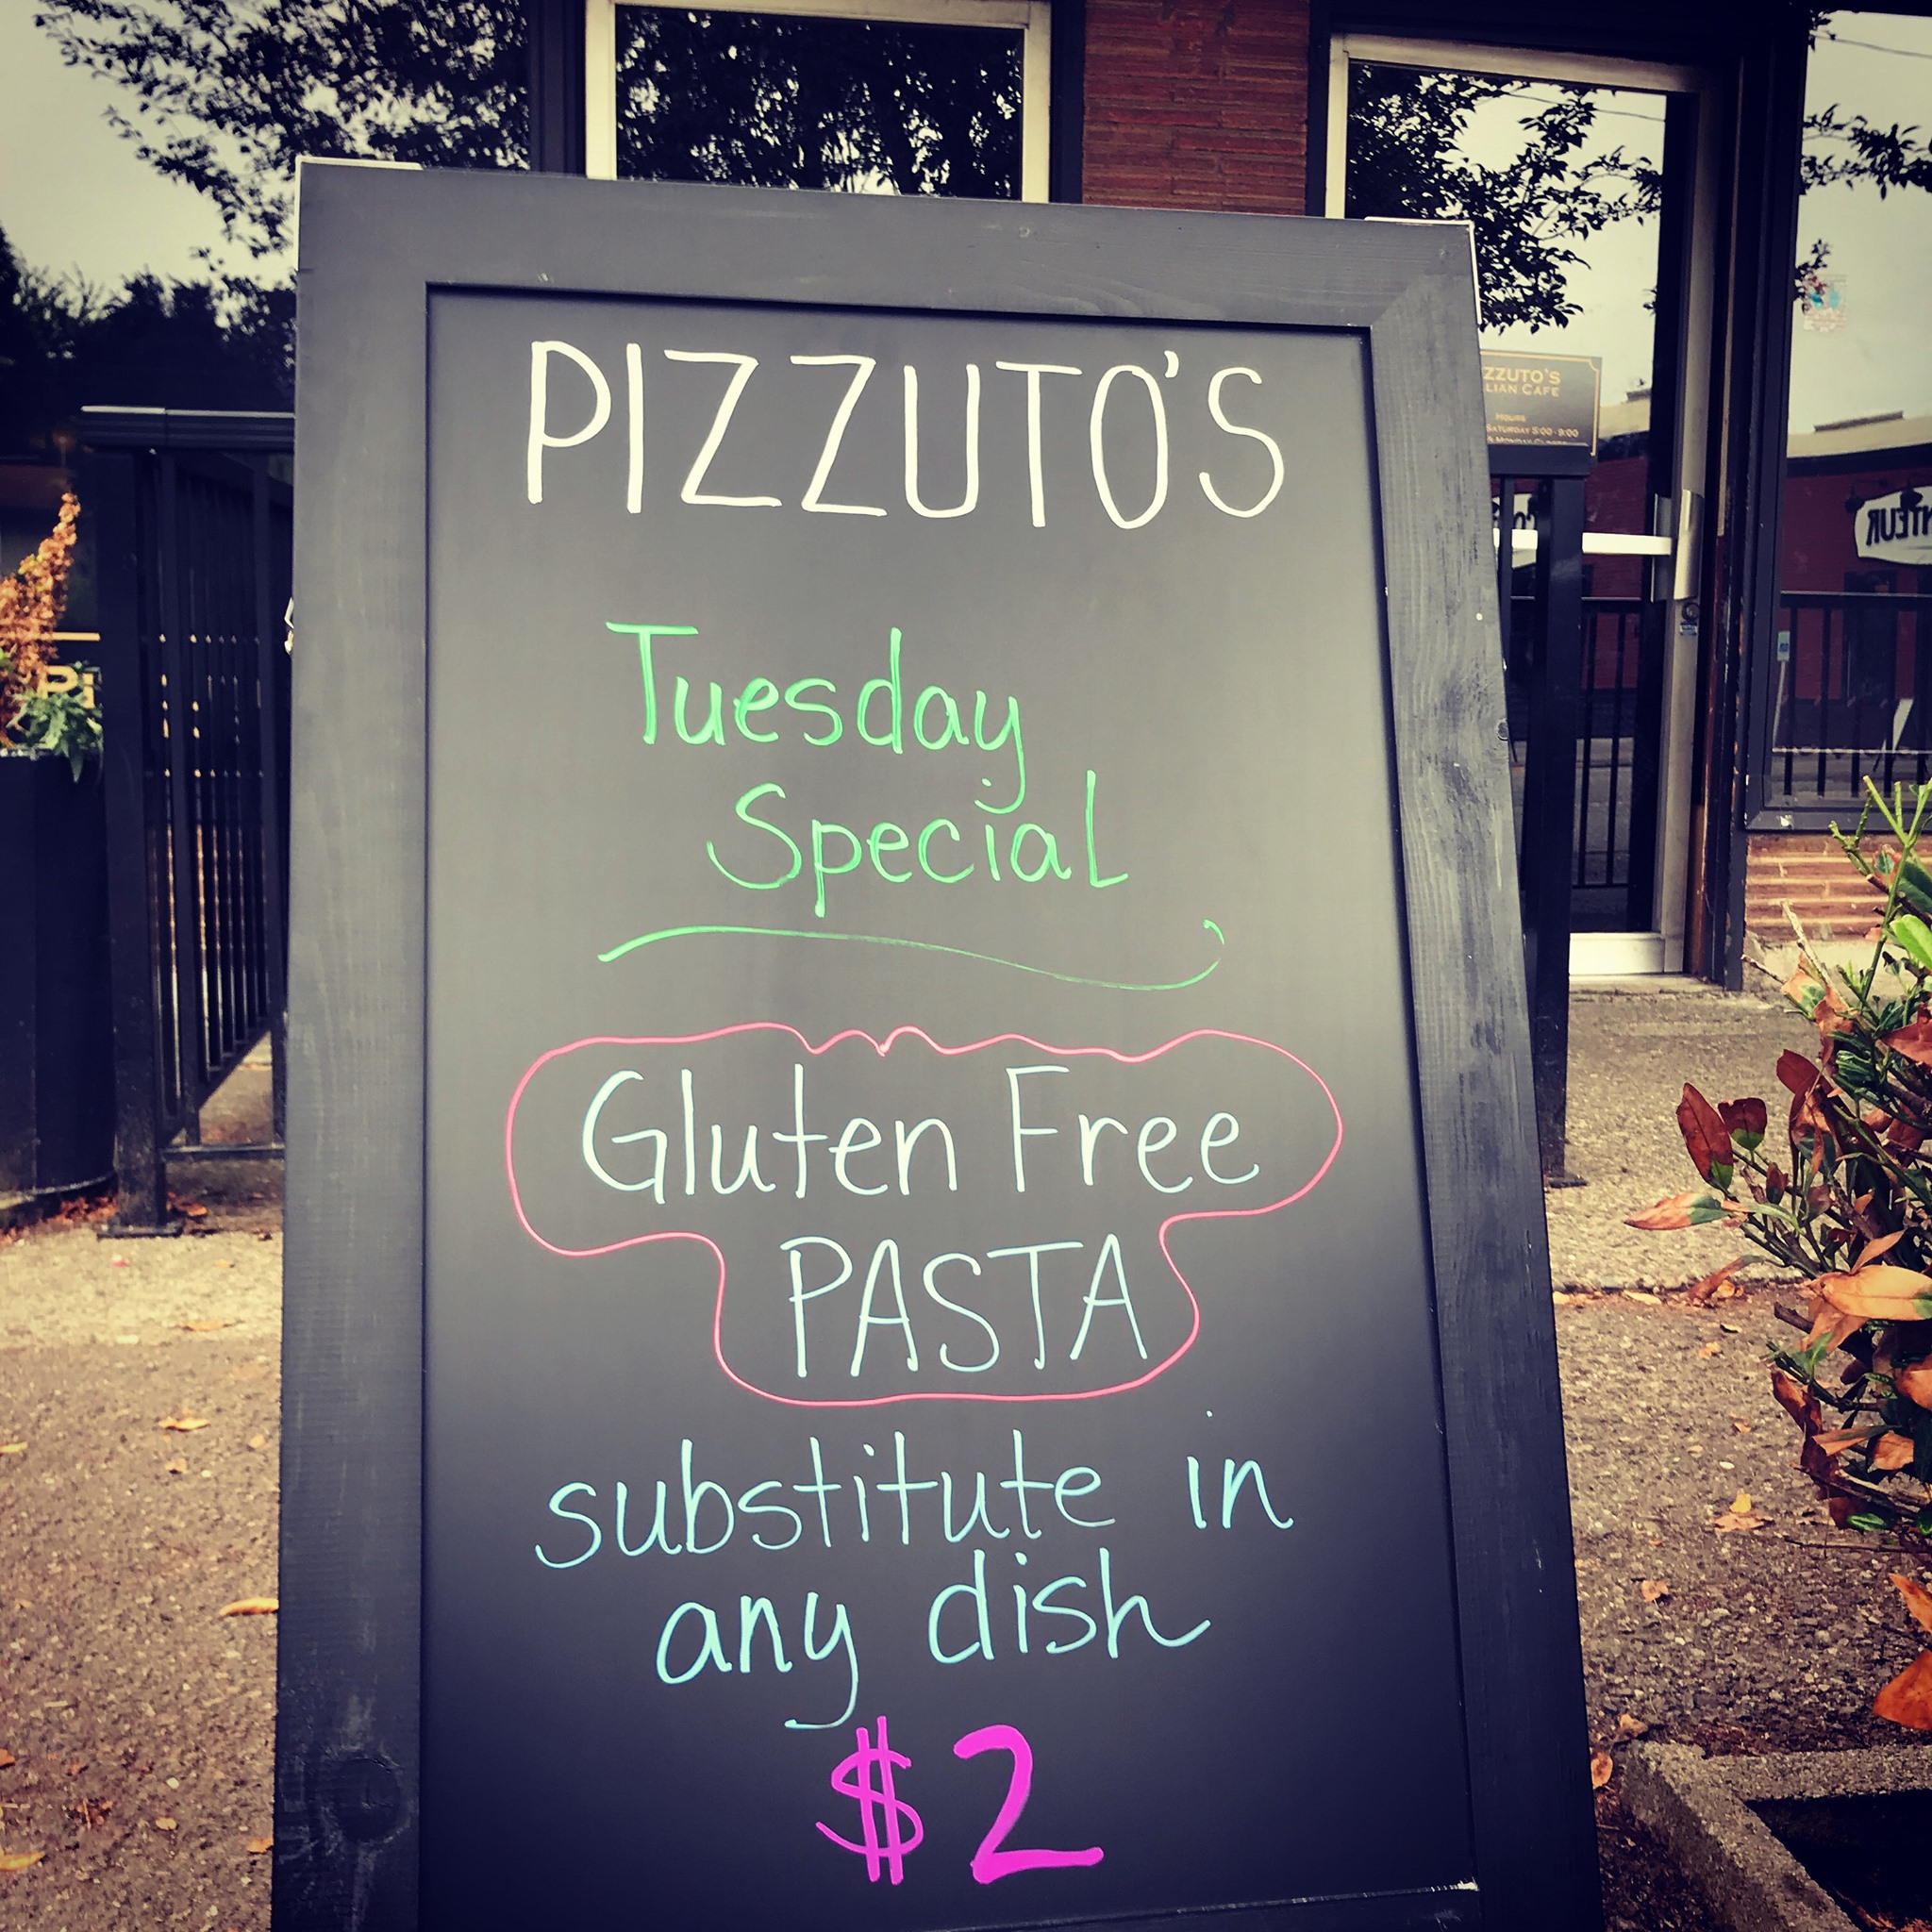 PIZZUTO'S
Tuesday
Special
Gluten Free
PASTA
substitute in
any dish
$2
ZZUTO'S
LIAN CAFE
HOURS
SATURDAY 5:00 - 9:00
& MONDAY CLOSED
Pi